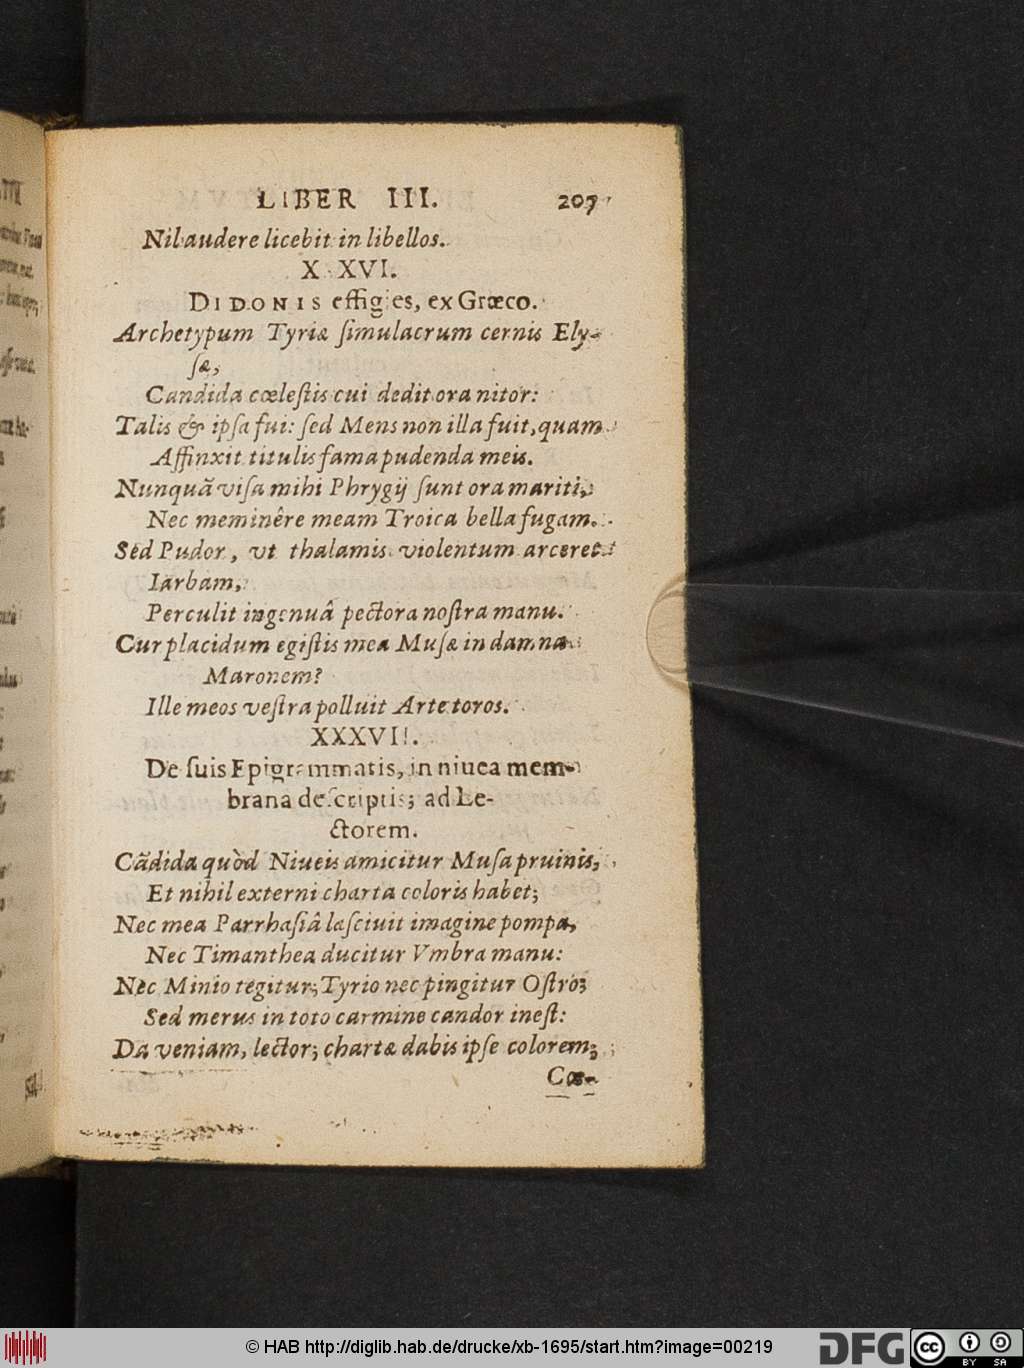 LIBER III. 207
Nil audere licebit in libellos.
X XVI.
DIDONIS effigies, ex Græco.
Archetypum Tyriæ ſimulacrum cernis Ely-
ſæ,
Candida cœleſtis cui dedit ora nitor:
Talis & ipſa fui: ſed Mens non illa fuit, quam
Affinxit titulis fama pudenda meis.
Nunquã viſa mihi Phrygij ſunt ora mariti,
Nec meminêre meam Troica bella fugam.
Sed Pudor, vt thalamis violentum arceret
Iarbam,
Perculit ingenuâ pectora noſtra manu.
Cur placidum egiſtis mea Muſæ in damna
Maronem?
Ille meos veſtra polluit Arte toros.
XXXVII.
De ſuis Epigrammatis, in niuea mem-
brana deſcriptis; ad Le-
ctorem.
Cãdida quòd Niueis amicitur Muſa pruinis,
Et nihil externi charta coloris habet;
Nec mea Parrhaſiâ laſciuit imagine pompa,
Nec Timanthea ducitur Vmbra manu:
Nec Minio tegitur; Tyrio nec pingitur Oſtro;
Sed merus in toto carmine candor ineſt:
Da veniam, lector; chartæ dabis ipſe colorem;
Cœ-
© HAB http://diglib.hab.de/drucke/xb-1695/start.htm?image=00219
DFG
cc BY SA